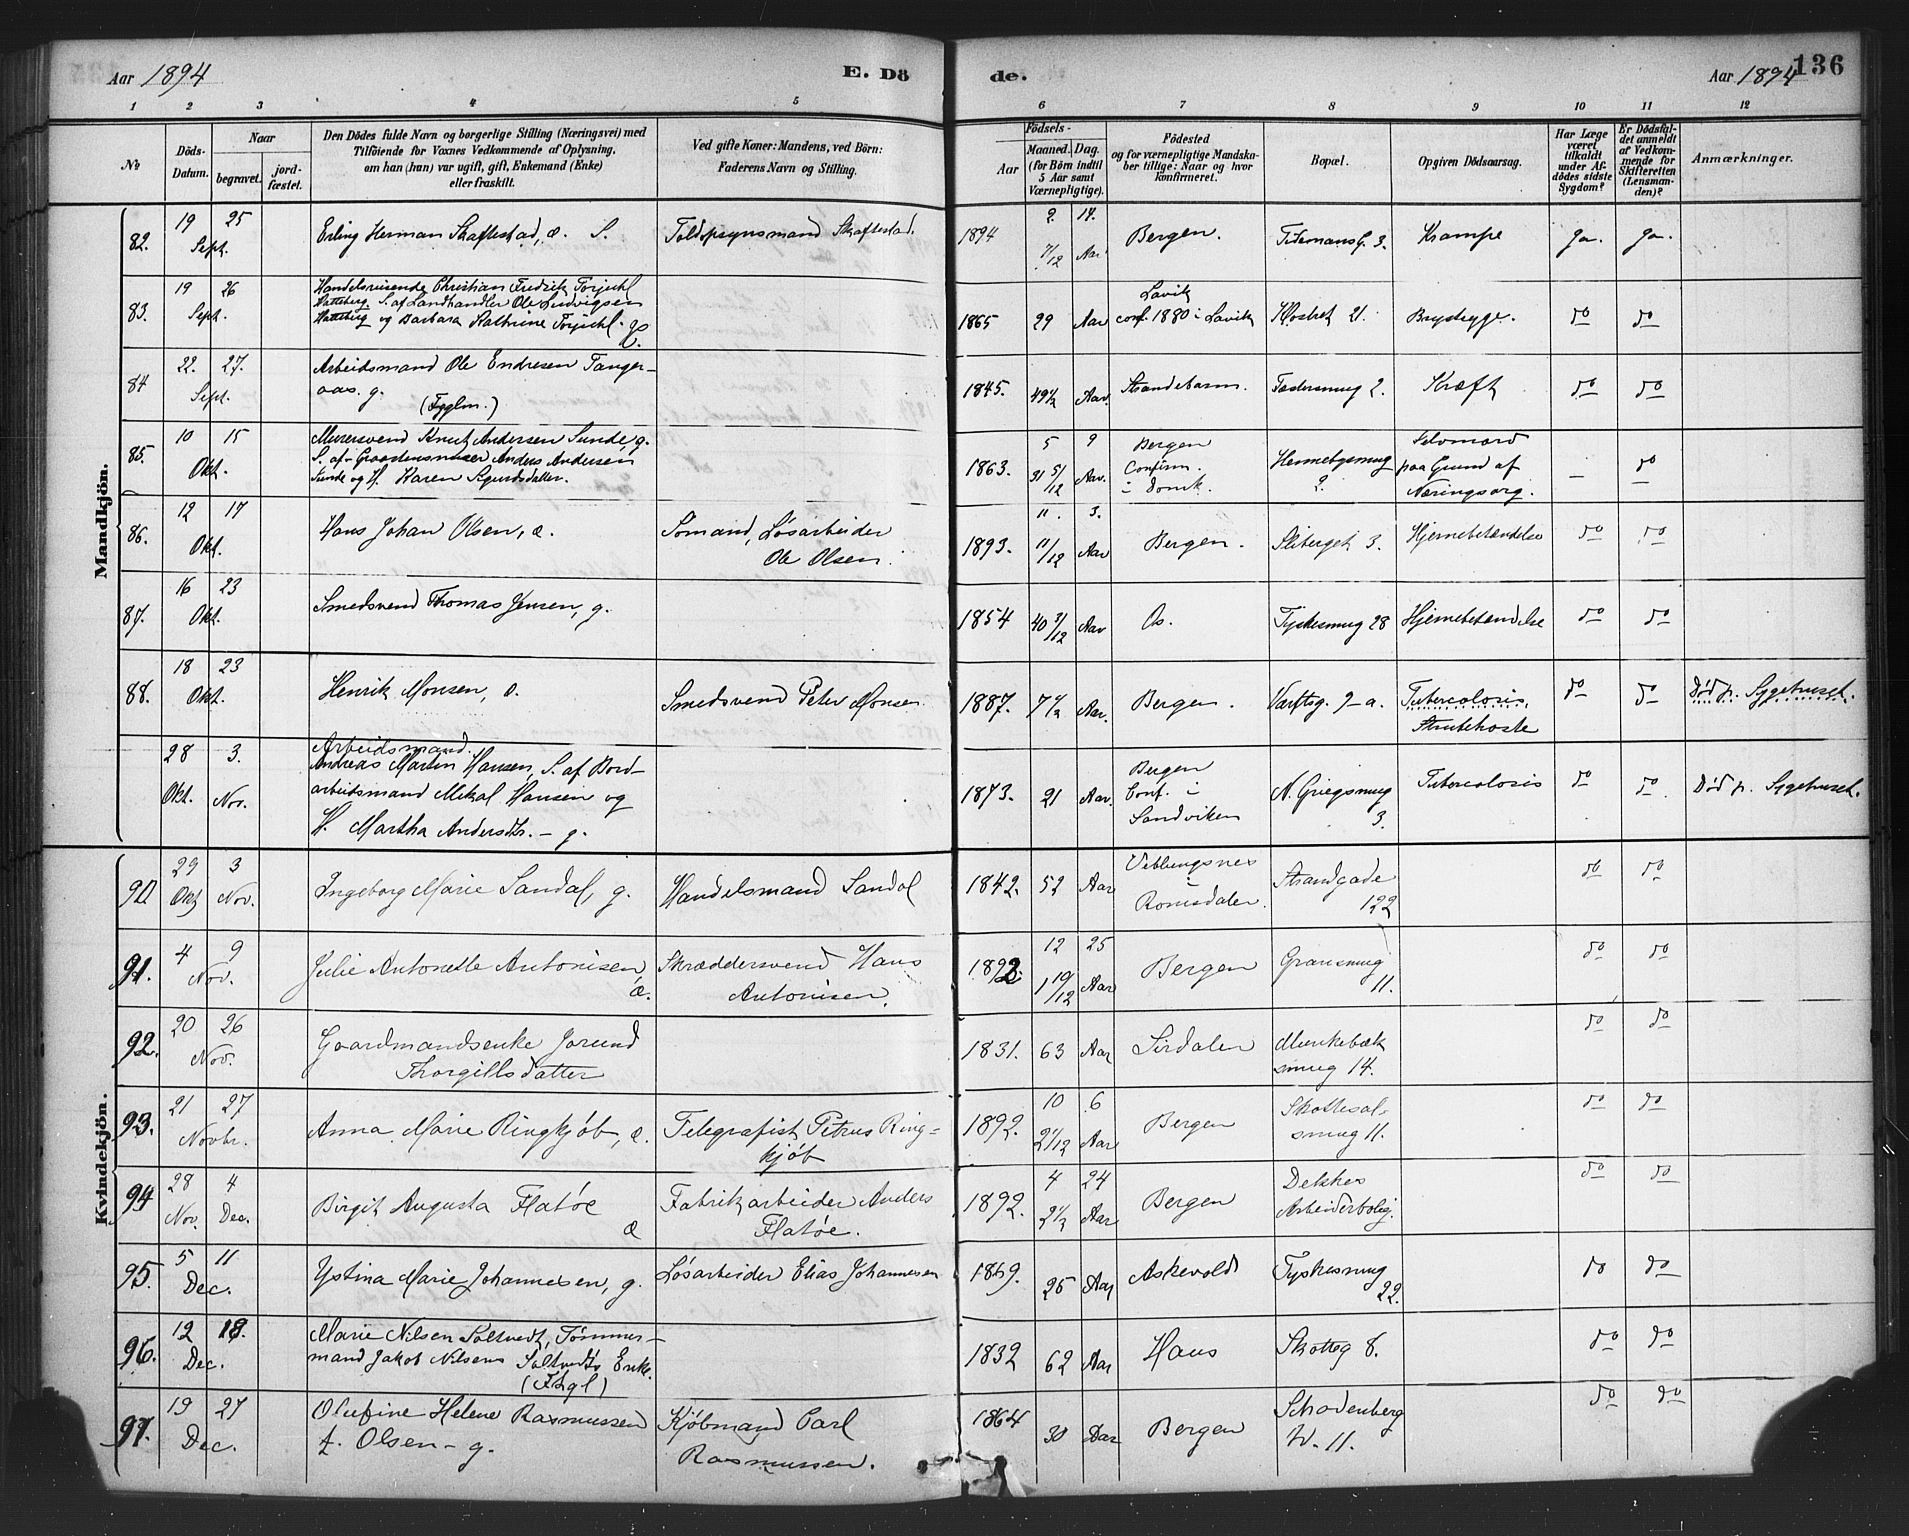 Aar 1894
E. Dö
de.
Aar 1894
136
1 2 3 4 5 6 7 8 9 10 11 12
No
Döds-
Datum.
Naar
begravet.
jord-
fæstet.
Den Dödes fulde Navn og borgerlige Stilling (Næringsvei) med
Tilföiende for Voxnes Vedkommende af Oplysning,
om han (hun) var ugift, gift, Enkemand (Enke)
eller fraskilt.
Ved gifte Koner: Mandens, ved Börn:
Faderens Navn og Stilling.
Födsels-
Aar
Maaned. Dag.
(for Börn indtil
5 Aar samt
Værnepligtige).
Födested
og for værnepligtige Mandska-
ber tillige: Naar og hvor
konfirmeret.
Bopæl.
Opgiven Dödsaarsag.
Har Læge
været
tilkaldt
under Af-
dödes sidste
Sygdom?
Er Dödsfal-
det anmeldt
af Vedkom-
mende for
Skifteretten
(Lensman-
den)?
Anmærkninger.
Mandkjön.
82. 19 25 Sept. Erling Herman Skaftestad, æ. S. Toldopsynsmand Skaftestad. 1894 2. 14. 7/12 Aar Bergen. G. 3. Krampe Ja. Ja.
83. 19 26 Sept. Handelsreisende Christian Fredrik
Hatteberg S. af Landhandler Ole Ludvigsen
Hatteberg og Barbara Kathrine
1865 29 Aar Lavik
conf. 1880 i Lavik Klostret 21. Brystsyge. do do
84 22. 27. Sept. Arbeidsmand Ole Endresen Tanger-
aas. g.
1845. 49 1/2 Aar. Strandebarm. 2. Kræft do do
85. 10 15 Okt. Murersvend Knut Andersen Sunde, g.
S. af Anders Andersen
Sunde og H. Karen Sjurdsdatter.
1863. 5 9 31 5/12 Aar. Bergen
Confirm.
i Domk. Selvmord
paa Grund af
Næringssorg. — do
86. 12 17 Okt. Hans Johan Olsen, æ. Sömand, Løsarbeider
Ole Olsen. 1893. 11. 3. 11/12 Aar Bergen. Sliberget 3. Hjernebetændelse do do
87. 16 23 Okt. Smedsvend Thomas Jensen, g. 1854 40 3/12 Aar Os. Tyskesmug 28 Hjernebetændelse do do
88. 18 23 Okt. Henrik Monsen, æ. Smedsvend Peter Monsen. 1887. 7 1/2 Aar. Bergen. Værftsg. 7-a. Tubercolosis.
Strubehoste do do Død p. Sygehuset.
28 3. Okt. Nov. Arbeidsmand.
Andreas Martin Hansen, S. af Bord-
arbeidsmand Mikal Hansen og
H. Martha Andersdtr. - g.
1873. 21 Aar. Bergen
Conf. i
Sandviken N. Griegsmug
3. Tubercolosis do do. Død p. Sygehuset.
Kvindekjön.
90 29 3 Okt Nov. Ingeborg Marie Sandal, g. Handelsmand Sandal 1842. 52 Aar Veblungsnes
i
Romsdalen. Strandgade
122 do do
91. 4 9 Nov. Julie Antonette Antonisen
æ. Skræddersvend Hans
Antonisen. 1892. 12 25 1 10/12 Aar Bergen Gransmug
11. do do
92. 20 26 Nov. Gaardmandsenke Jorund
Thorgillsdatter 1831. 63 Aar Sirdalen Munkebæk
smug 14. do do
93. 21 27 Novbr. Anna Marie Ringkjøb, æ. Telegrafist Petrus Ring-
kjøb 1892. 10 6 2 1/12 Aar Bergen Skottesal-
smug 11. do do
94 28 4 Nov. Dec. Birgit Augusta Flatöe
æ Fabrikarbeider Anders
Flatöe. 1892. 4 24 2 1/2 Aar Bergen Dekkes
Arbeiderbolig. do do
95. 5 11 Dec. Ystina Marie Johannesen, g. Løsarbeider Elias Johannesen 1869. 25 Aar Askevold Tyskesmug
22. do do
96. 12 18. Dec. Marie Nilsen Saltvedt, Tømmer-
mand Jakob Nilsens Saltvedts Enke.
1832 62 Aar Haus Skotteg 8. do do
97. 19 27 Dec. Olufine Helene Rasmussen
f. Olsen - g. Kjøbmand Carl
Rasmussen. 1864 30 Aar Bergen
11. do do